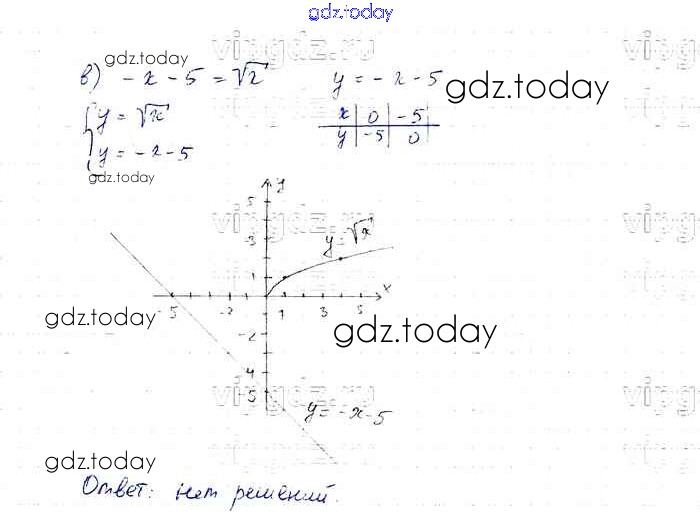 gdz.today
gdz.today
vipgdz.ru
в) -x - 5 = √x
y = -x - 5
gdz.today
{ y = √x
x | 0 | -5
y = -x - 5
y | -5 | 0
gdz.today
y
5
vipgdz.ru
3
y = √x
1
x
-5 -2 1 3 5
gdz.today
gdz.today
-2
-4
-5
vipgdz.ru
y = -x - 5
gdz.today
Ответ: нет решений.